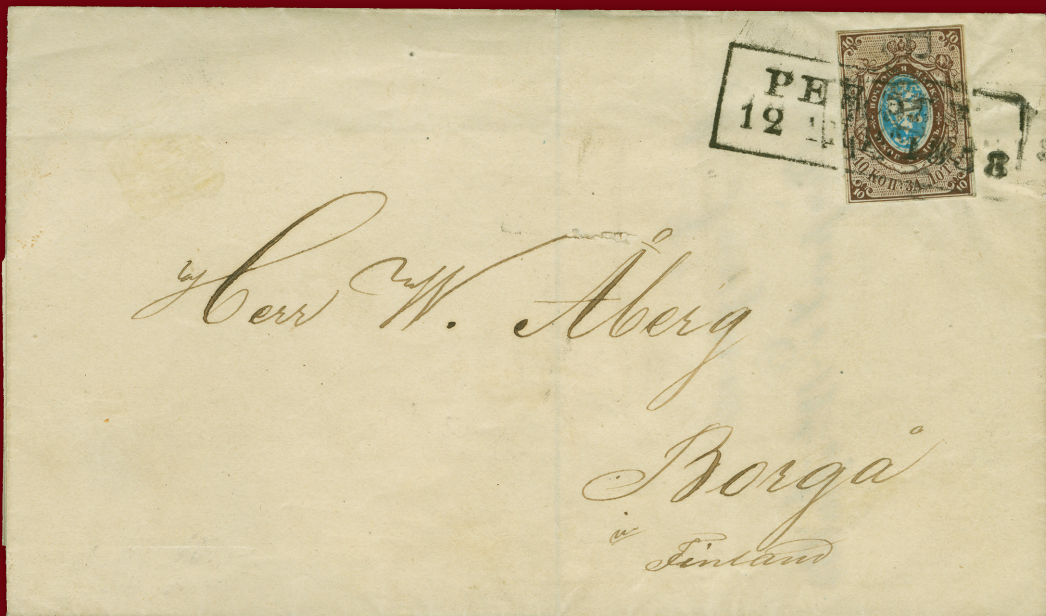 10 10
12
8
10 КОП: ЗА ЛОТЪ 10
Herr W. Åberg
Borgå
i
Finland